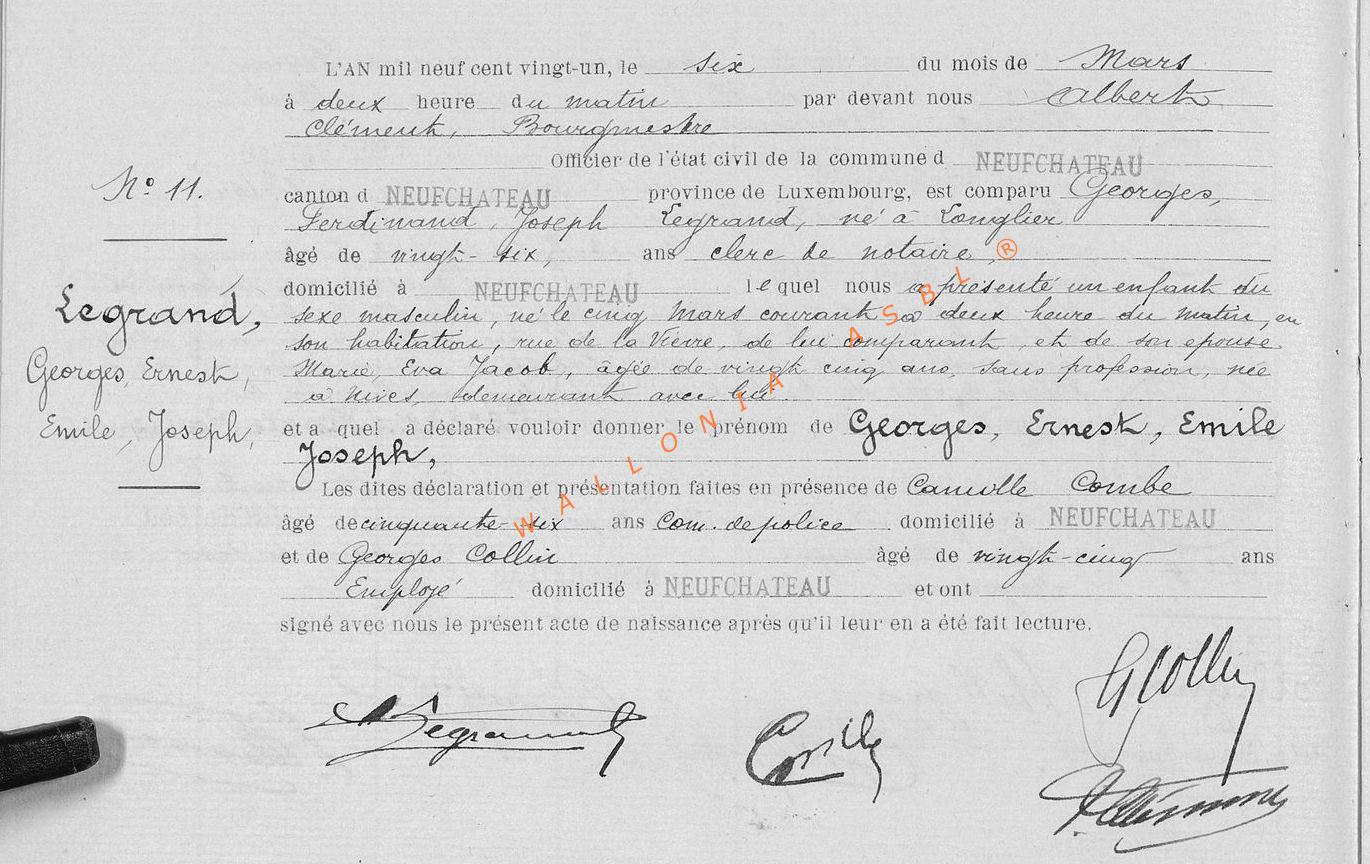 L'AN mil neuf cent vingt-un, le six du mois de Mars
à deux heure du matin par devant nous Albert
Clément, Bourgmestre
Officier de l'état civil de la commune d NEUFCHATEAU
N° 11.
canton d NEUFCHATEAU province de Luxembourg, est comparu Georges,
Ferdinand, Joseph Legrand, né à Longlier
âgé de vingt-six, ans clerc de notaire, ®
domicilié à NEUFCHATEAU lequel nous a présenté un enfant du
Legrand,
sexe masculin, né le cinq Mars courant à deux heure du matin, en
son habitation, rue de la Vierre, de lui comparant, et de son epouse
Georges, Ernest,
Marie, Eva Jacob, âgée de vingt cinq ans, sans profession, née
à Nives, demeurant avec lui.
Emile, Joseph,
et a quel a déclaré vouloir donner le prénom de Georges, Ernest, Emile
Joseph,
Les dites déclaration et présentation faites en présence de Camille Combe
âgé de cinquante-six ans Com. de police domicilié à NEUFCHATEAU
et de Georges Collin âgé de vingt-cinq ans
Employé domicilié à NEUFCHATEAU et ont
signé avec nous le présent acte de naissance après qu'il leur en a été fait lecture.
WALLONIA ASBL
GCollin
Legrand